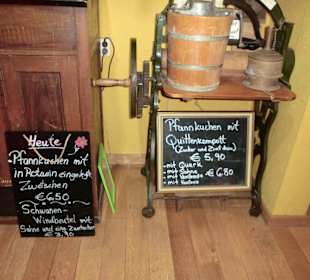 Heute!
Pfannkuchen mit
in Rotwein eingelegt
Zwetschen
€ 6.50
Schwanen-
Windbeutel mit
Sahne und eine
€ 3.90
Pfannkuchen mit
Quittenkompott
(Zucker und Zimt dazu)
€ 5,90
- mit Quark
- mit Sahne
- mit
- mit € 6.80